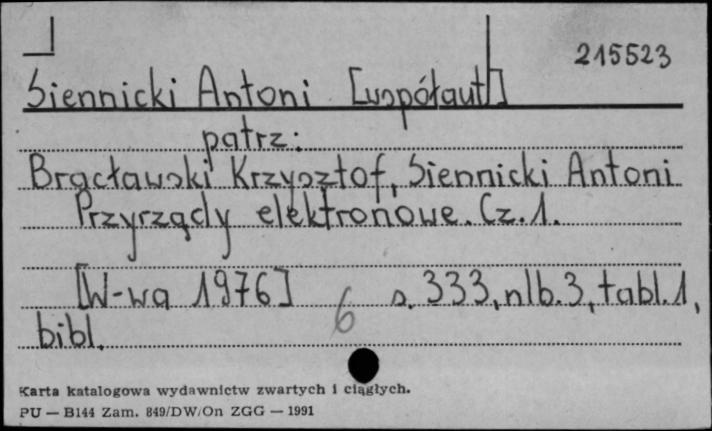 215523
Siennicki Antoni [współaut]
patrz:
Bracławski Krzysztof, Siennicki Antoni
Przyrządy elektronowe. Cz. 1.
[W-wa 1976] s. 333, nlb. 3, tabl. 1,
6
bibl.
Karta katalogowa wydawnictw zwartych i ciągłych.
PU — B144 Zam. 849/DW/On ZGG — 1991